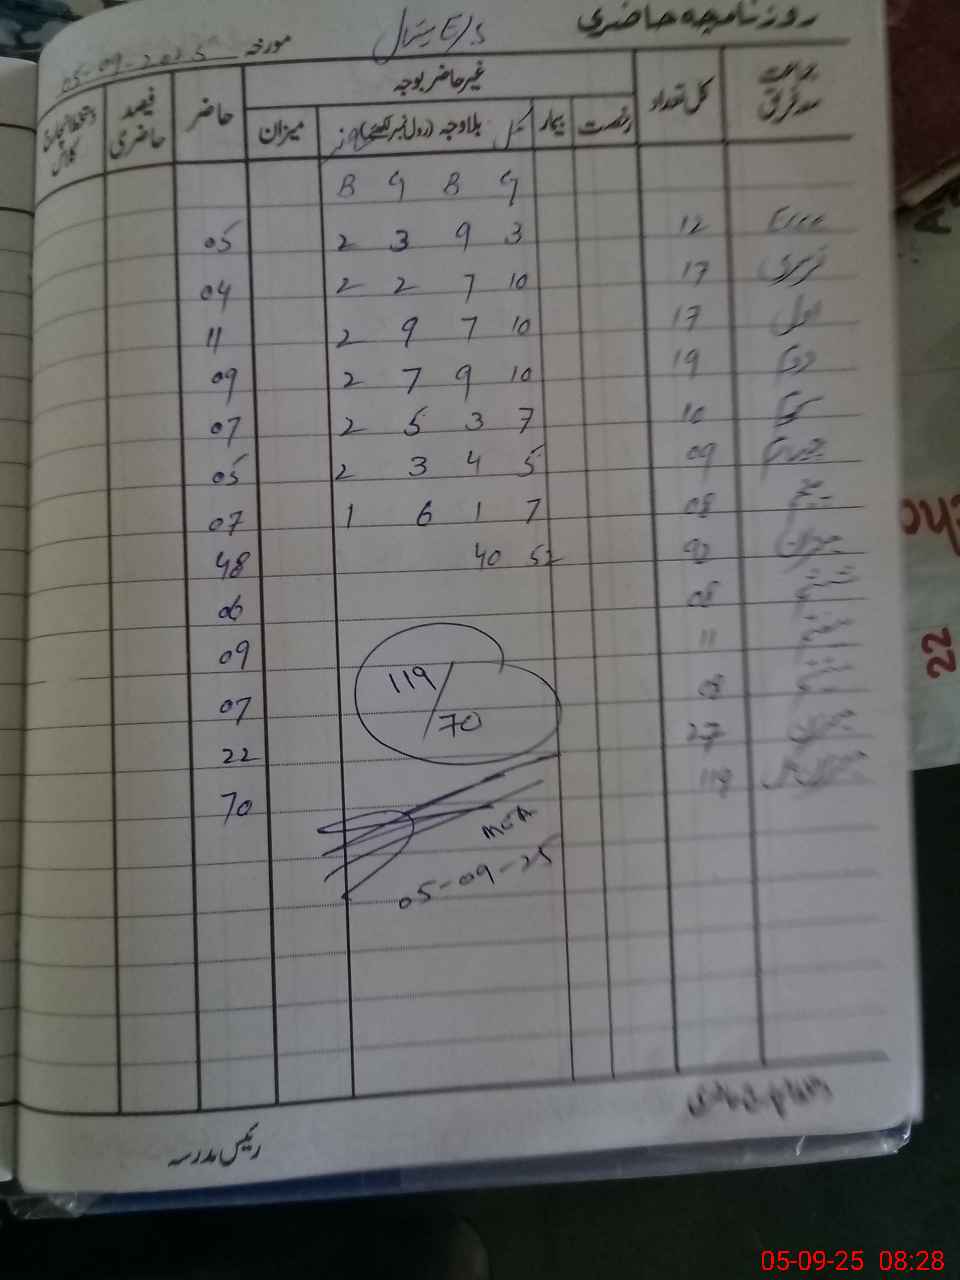 روزنامچہ حاضری
E/S مورخہ 05-09-2025
جماعت معہ فریق کل تعداد غیر حاضر بوجہ حاضر فیصد حاضری دستخط انچارج کلاس
رخصت بیمار بلاوجہ (رول نمبر لکھئے) میزان
G B G B
12 3 9 3 2 05
نرسری 17 10 7 2 2 04
اول 17 10 7 9 2 11
دوم 19 10 9 7 2 09
سوم 10 7 3 5 2 07
چہارم 09 5 4 3 2 05
پنجم 08 7 1 6 1 07
میزان 92 52 40 48
ششم 08 06
ہفتم 11 09
ہشتم 08 07
میزان 27 22
119 70
119/70
05-09-25
رئیس مدرسہ
22
05-09-25 08:28